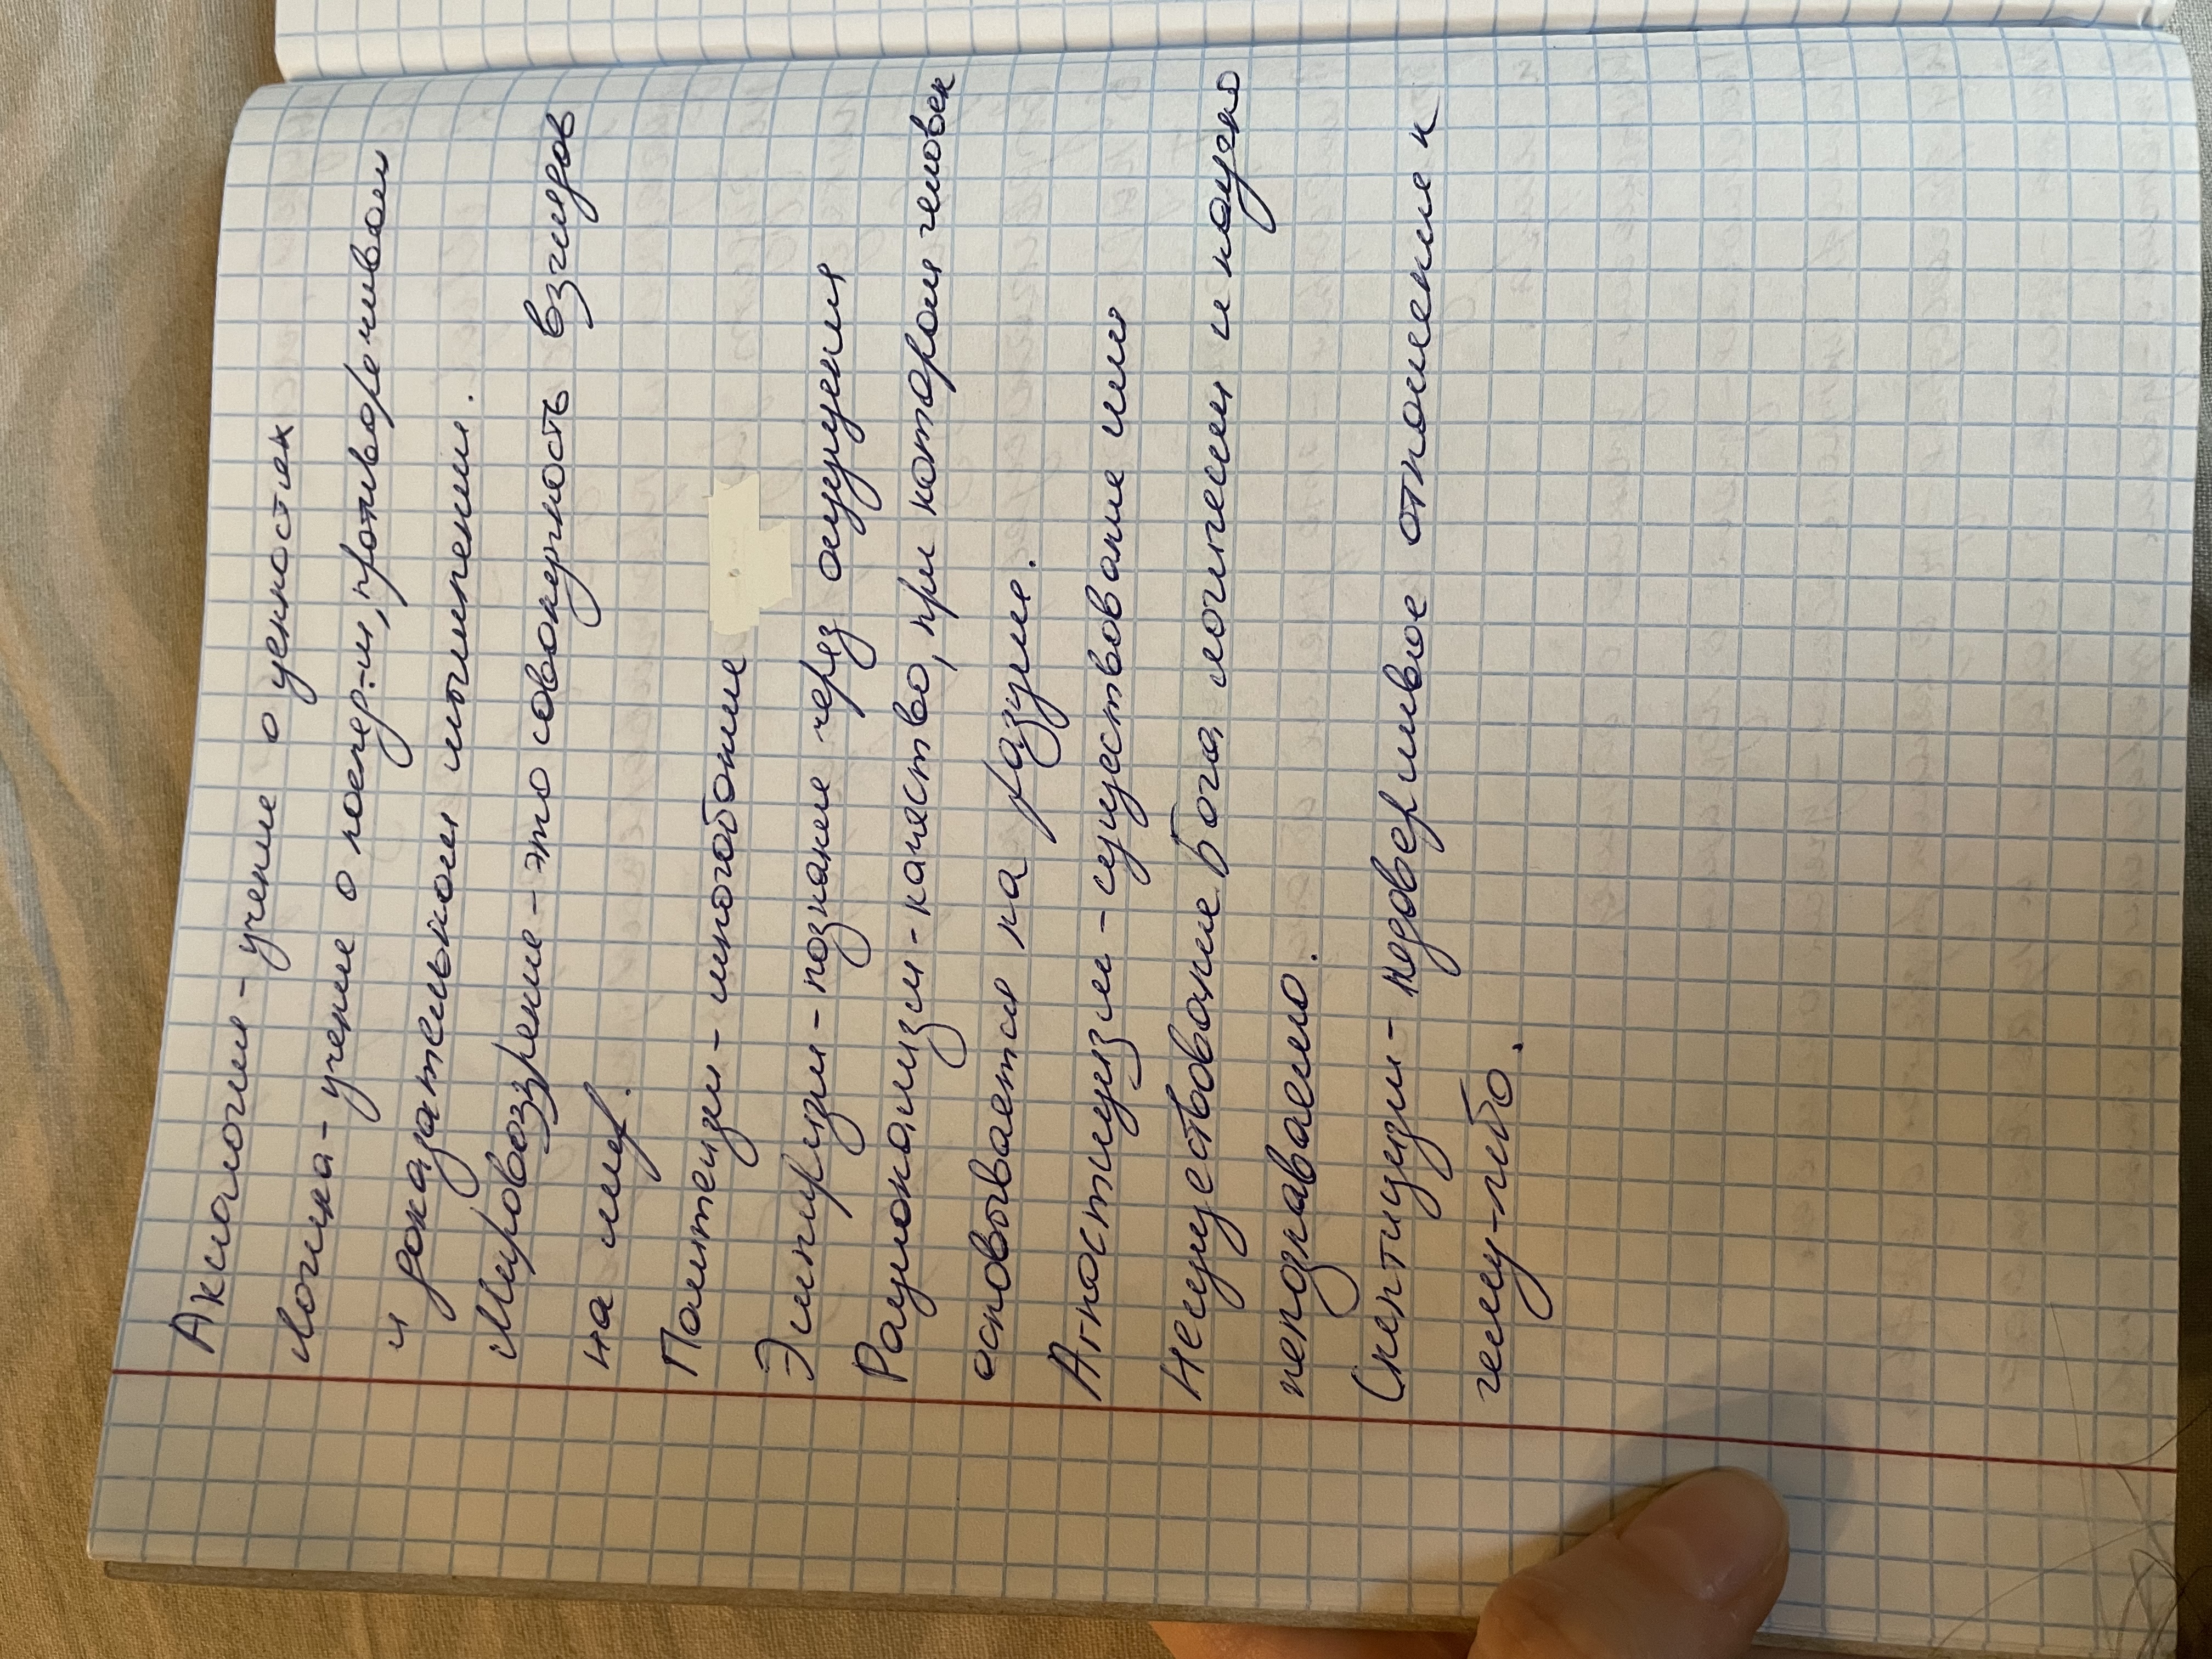 Аксиология - учение о ценностях
Логика - учение о послед-м, противоречивом
и доказательном мышлении.
Мировоззрение - это совокупность взглядов
на мир.
Политеизм - многобожие
Эмпиризм - познание через ощущения
Рационализм - качество, при котором человек
основывается на разуме.
Агностицизм - существование или
несуществование Бога логически и научно
непознаваемо.
Скептицизм - недоверливое отношение к
чему-либо.